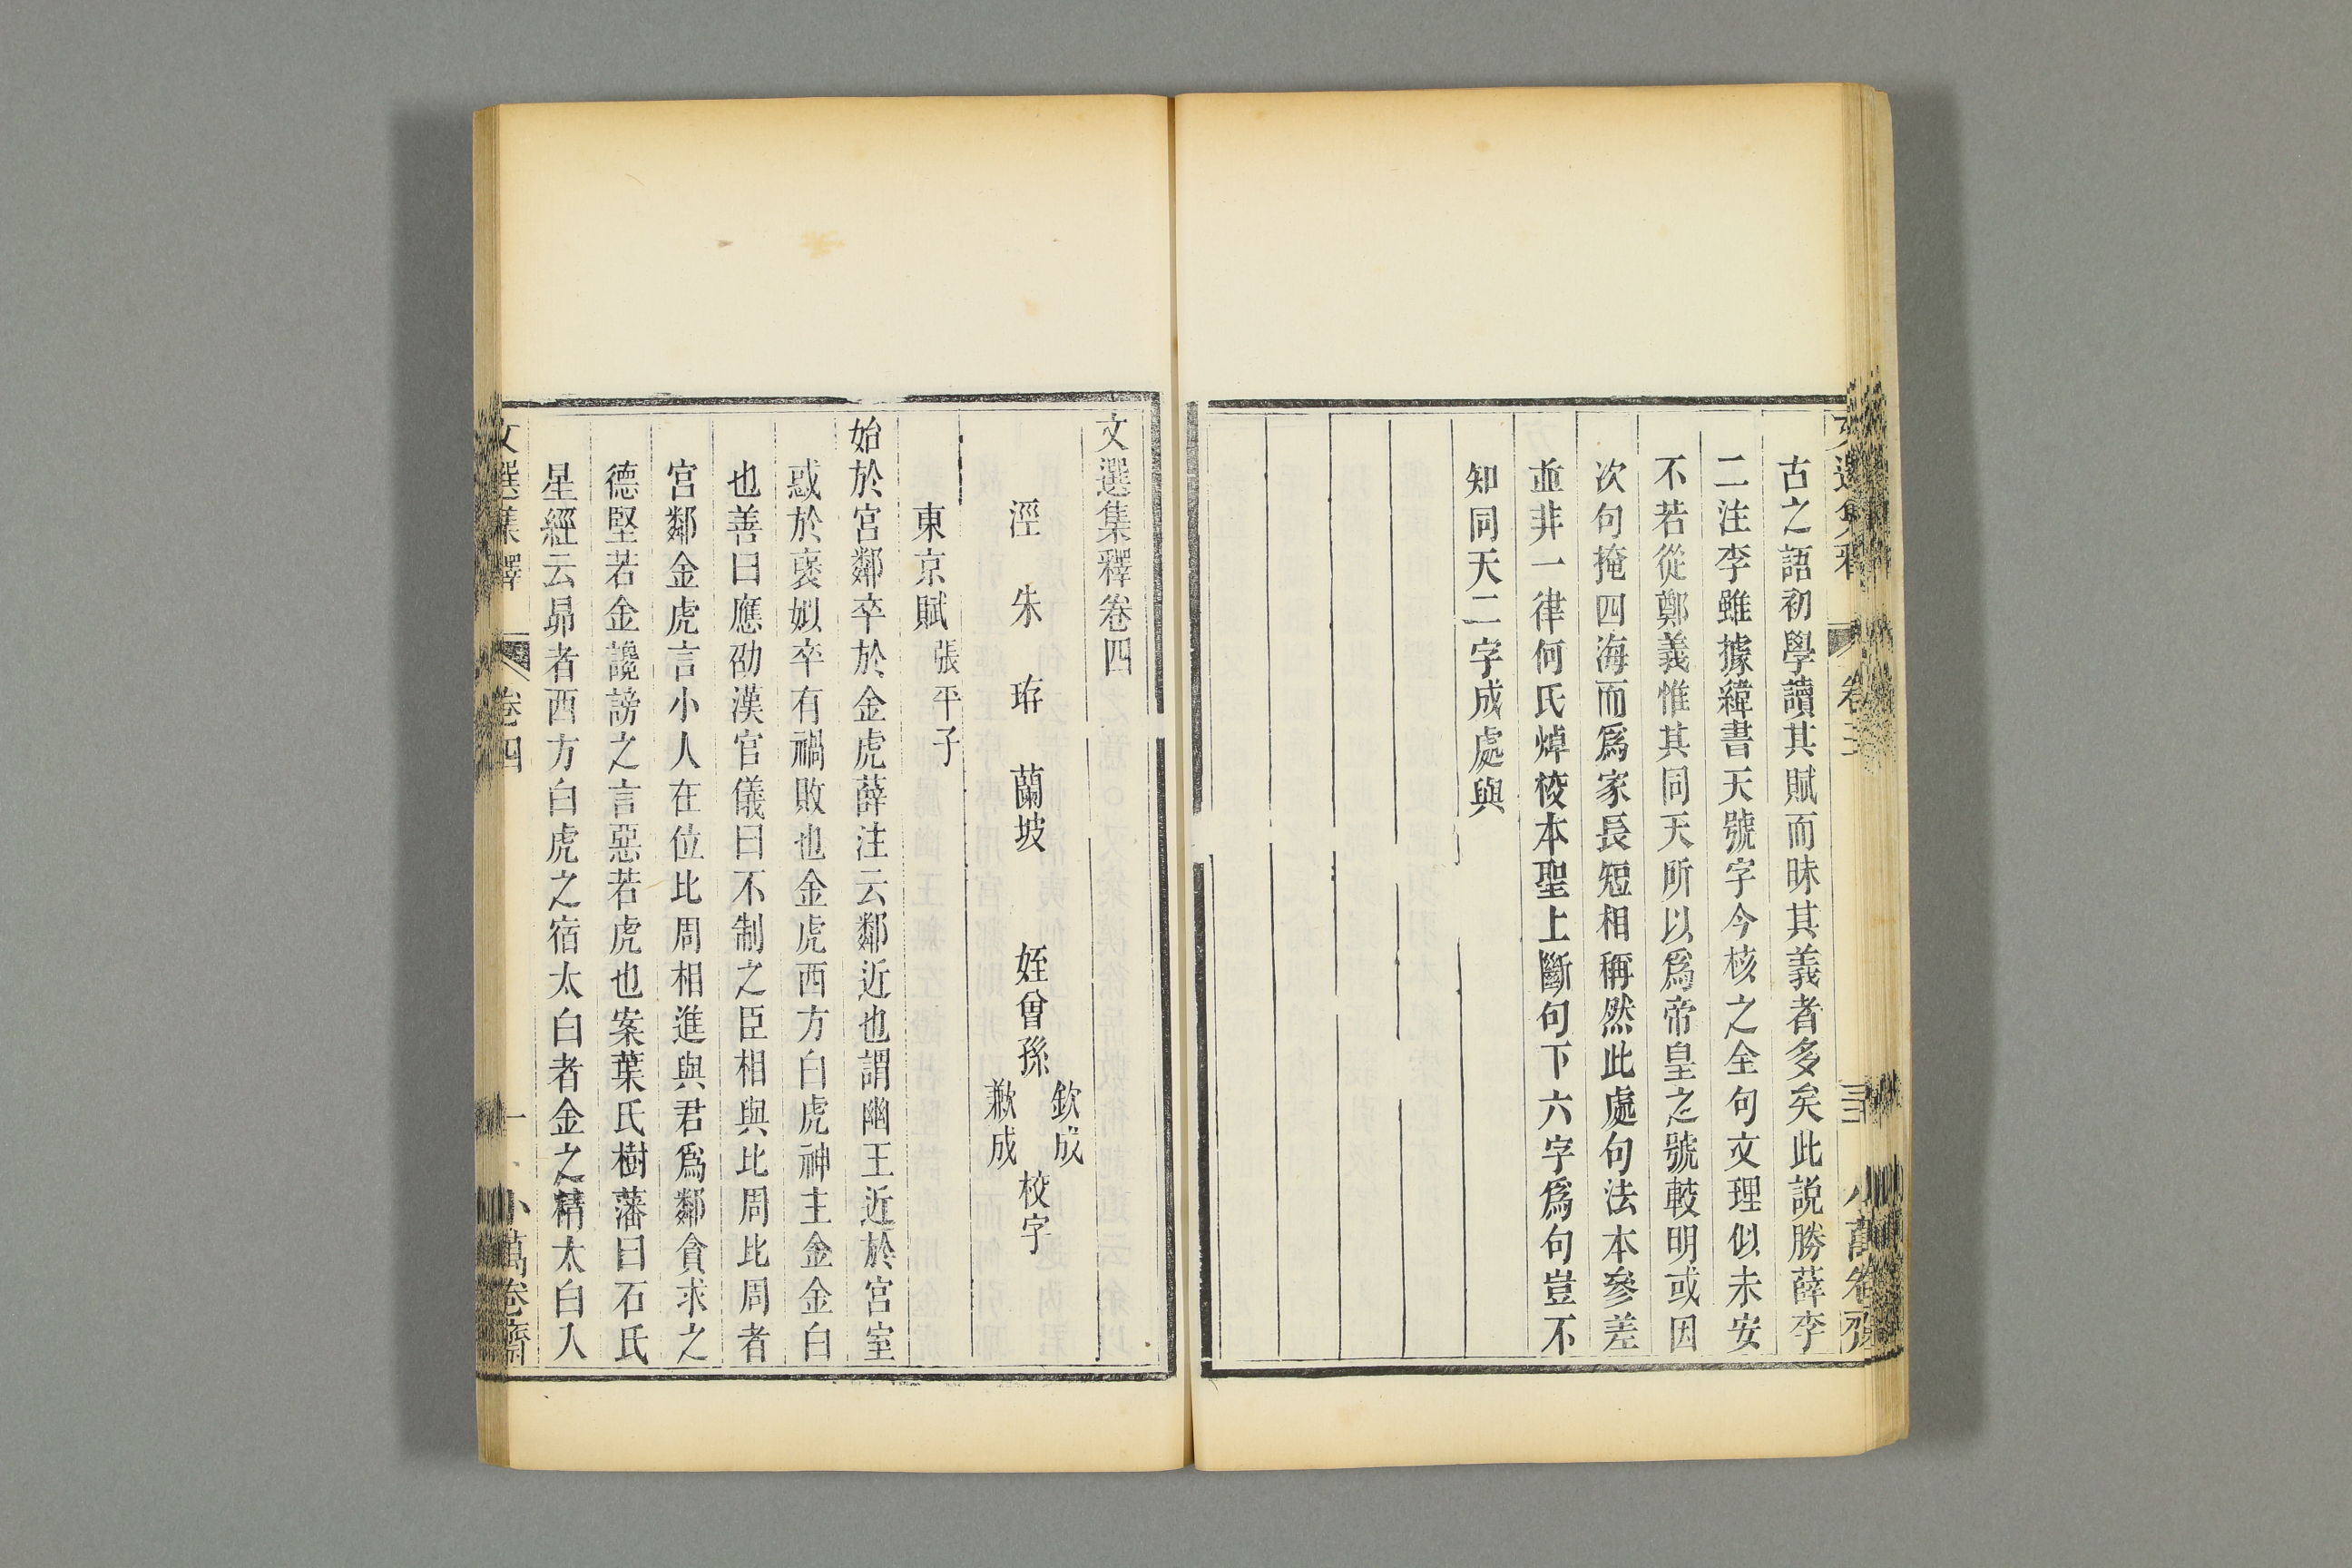 古之語初學讀其賦而昧其義者多矣此説勝薛李
二注李雖據緯書天號字今核之全句文理似未安
不若從鄭義惟其同天所以爲帝皇之號較明或因
次句掩四海而爲家長短相稱然此處句法本參差
並非一律何氏焯校本聖上斷句下六字爲句豈不
知同天二字成處與
文選集釋卷四
涇 朱 珔 蘭坡 姪曾孫
欽成
歉成
校字
東京賦張平子
始於宮鄰卒於金虎薛注云鄰近也謂幽王近於宮室
惑於褒姒卒有禍敗也金虎西方白虎神主金金白
也善曰應劭漢官儀曰不制之臣相與比周比周者
宮鄰金虎言小人在位比周相進與君爲鄰貪求之
德堅若金讒謗之言惡若虎也案葉氏樹藩曰石氏
星經云昴者西方白虎之宿太白者金之精太白入
文選集釋 卷四 一 小萬卷齋